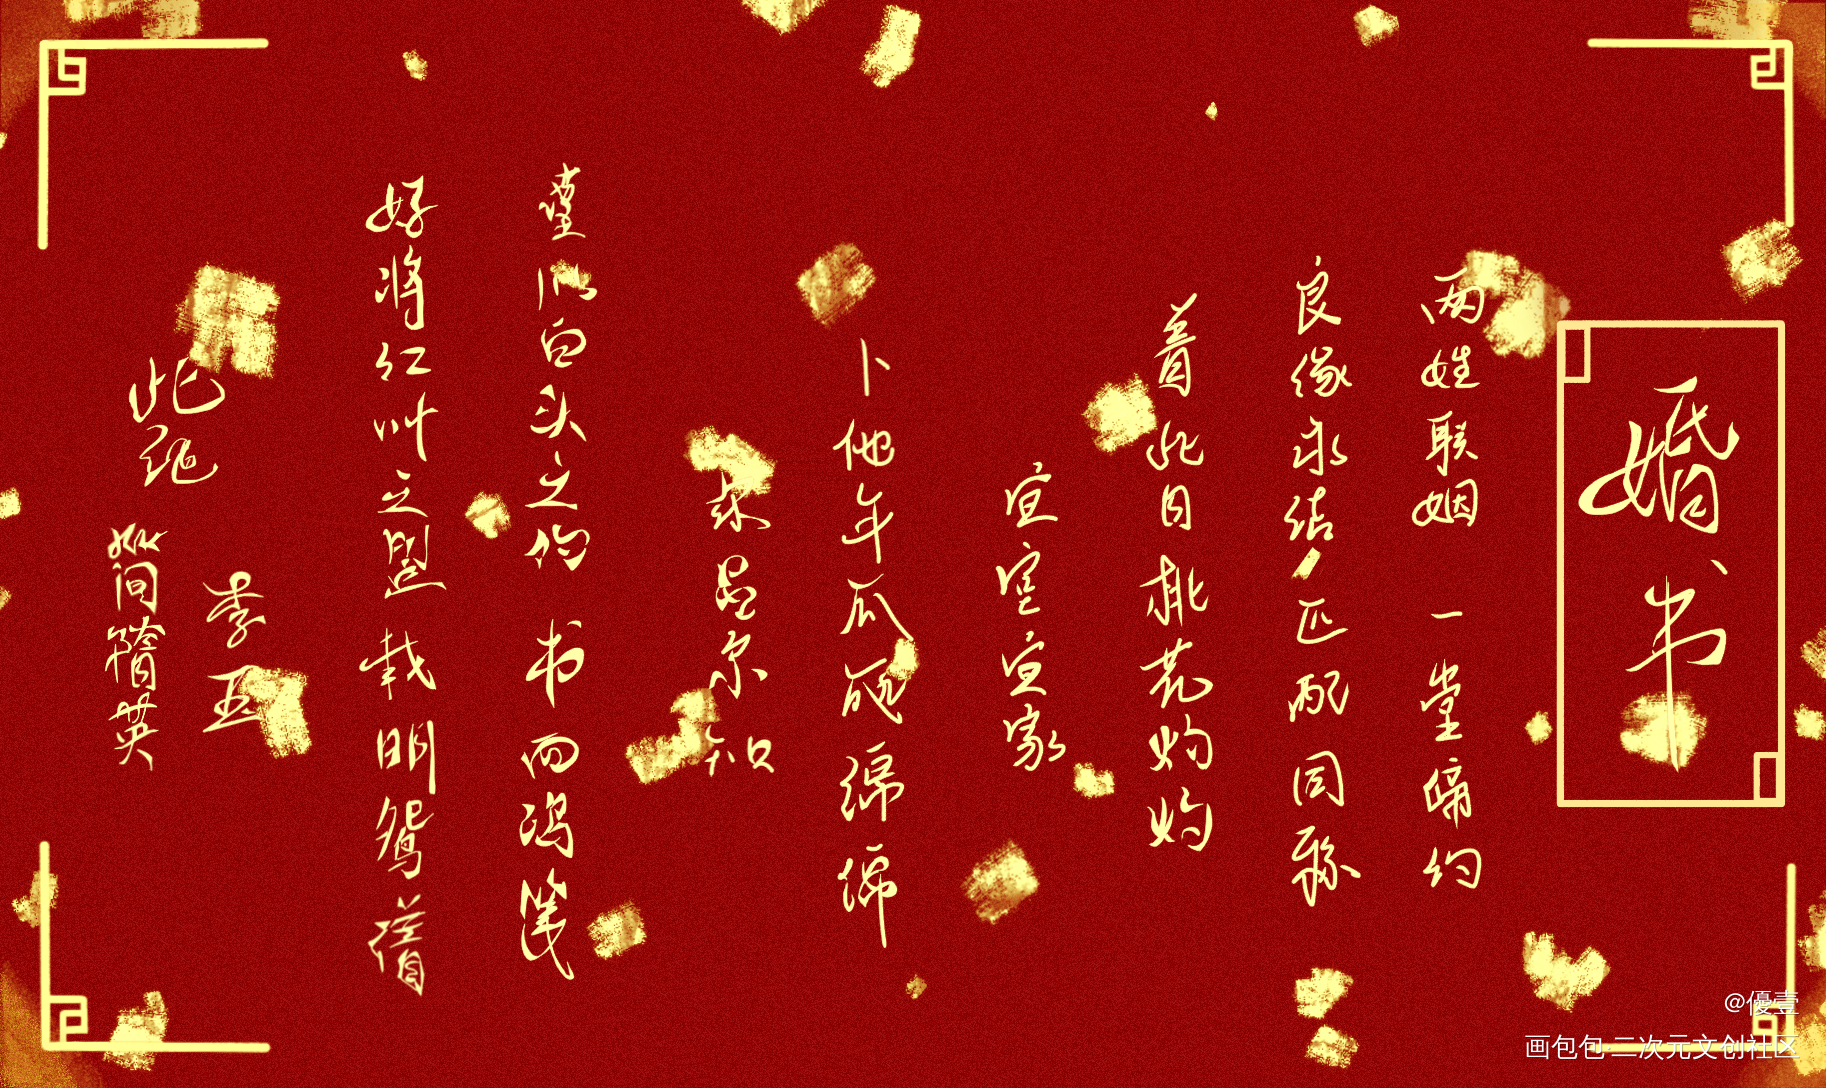 婚书
两姓联姻 一堂缔约
良缘永结 匹配同称
看此日桃花灼灼
宜室宜家
卜他年瓜瓞绵绵
尔昌尔炽
谨以白头之约 书向鸿笺
好将红叶之盟 载明鸳谱
此证
李
英
@優壹
画包包·二次元文创社区